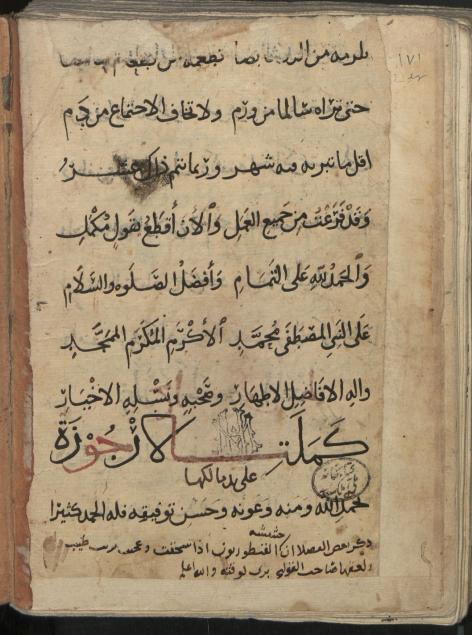 يلزمه من الدـ
حتى تراه سالما من ورم ولا تخاف الاجتماع من دم
اقل ما تبريه فيه شهر وربما تتم ذاك عشر
وقد فرغت من جميع العمل والان أقطع بقول مكمل
والحمد لله على التمام وأفضل الصلوه والسلام
على النبي المصطفى محمد الأكرم المكرم الممجد
واله الافاضل الاطهار وصحبه ونسله الاخيار
كملت الارجوزة
على يد مالكها
بحمد الله ومنه وعونه وحسن توفيقه فله الحمد كثيرا
حشيشه
ذكر بعض الفضلا ان القنطوريون اذا سحقت و
صاحب القولنج برى لوقته والله اعلم
١٧١